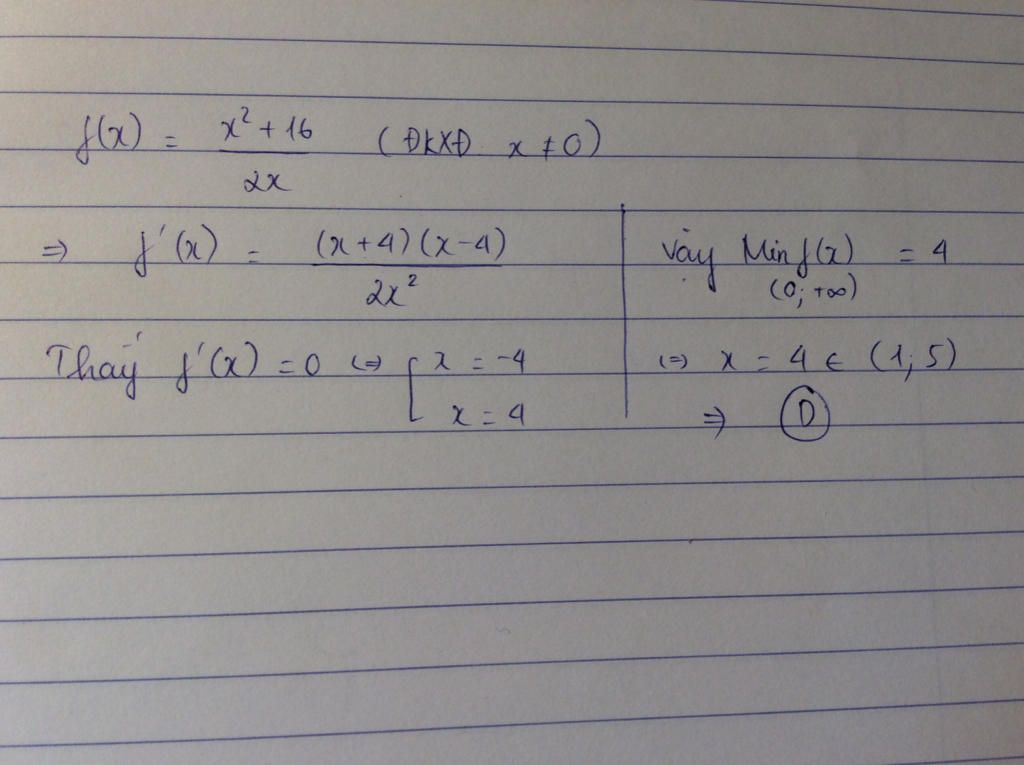 f(x) = x² + 16 / 2x (ĐKXĐ x ≠ 0)
⇒ f'(x) = (x+4)(x-4) / 2x²
Thấy f'(x) = 0 ⇔ [ x = -4
x = 4
Vậy Min f(x) = 4
(0; +∞)
⇔ x = 4 ∈ (1; 5)
⇒ D